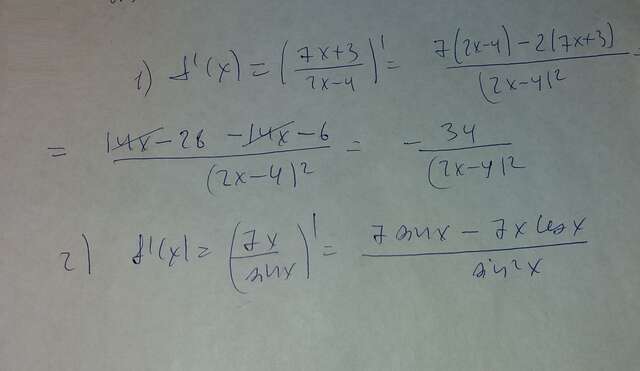 1) f'(x) = (7x+3 / 2x-4)' = 7(2x-4) - 2(7x+3) / (2x-4)² =
= 14x - 28 - 14x - 6 / (2x-4)² = - 34 / (2x-4)²
2) f'(x) = (7x / sinx)' = 7 sinx - 7x cosx / sin²x